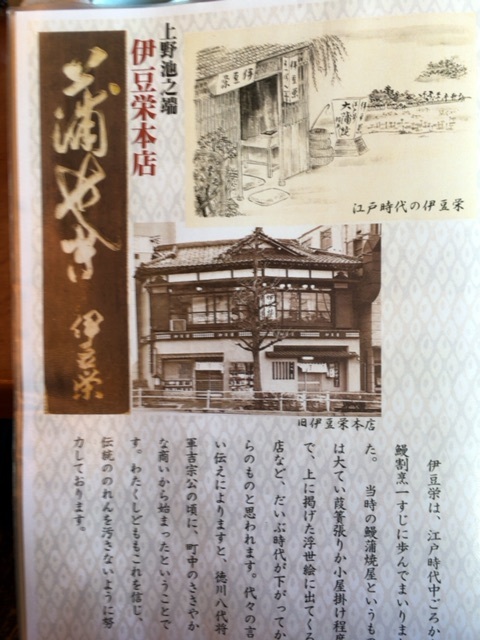 上野池之端
伊豆栄本店
伊豆栄
江戸時代の伊豆栄
大蒲焼
伊豆栄
旧伊豆栄本店
伊豆栄は、江戸時代中ごろか
鰻割烹一すじに歩んでまいりま
た。 当時の鰻蒲焼屋というも
は大てい葭簀張りか小屋掛け程度
で、上に掲げた浮世絵に出てくる
店など、だいぶ時代が下がってか
らのものと思われます。代々の言
い伝えによりますと、徳川八代将
軍吉宗公の頃に、町中のささやか
な商いから始まったということで
す。わたくしどももこれを信じ、
伝統ののれんを汚さないように努
力しております。